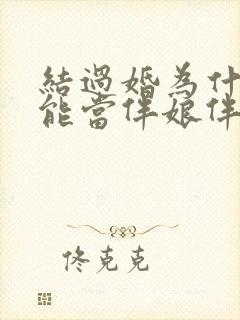 結過婚為什
能當伴娘伴
佟克克